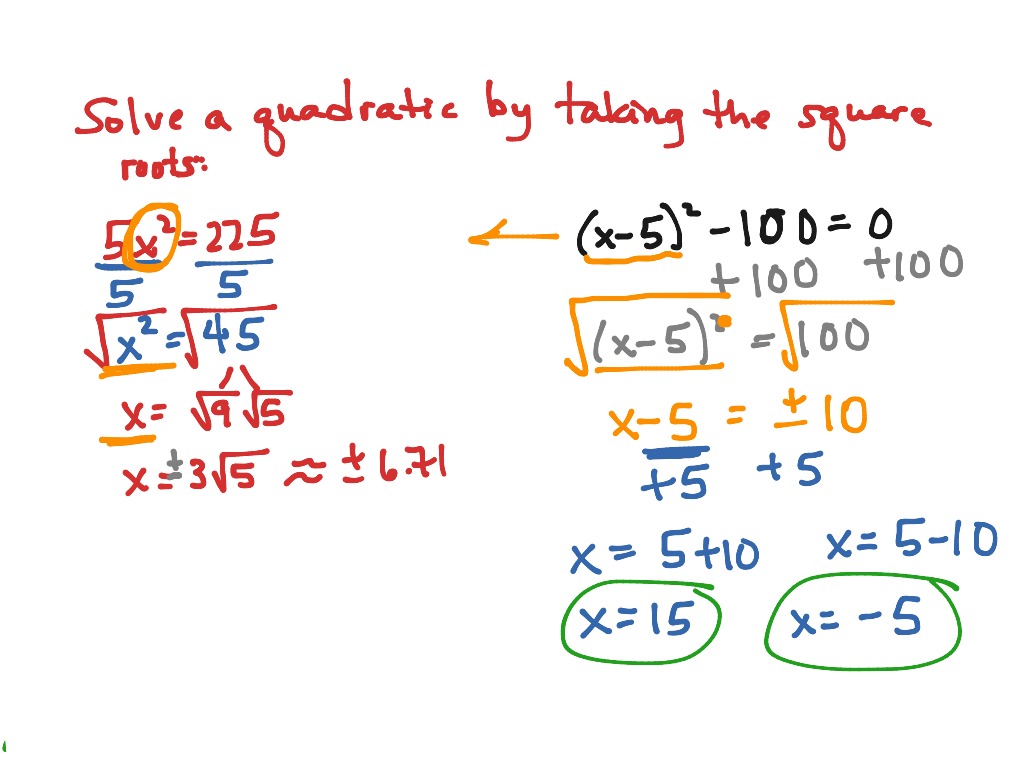 Solve a quadratic by taking the square
roots:
5x² = 225
5 5
√x² = √45
x = √9 √5
x = ± 3√5 ≈ ± 6.71
(x-5)² - 100 = 0
+100 +100
√(x-5)² = √100
x-5 = ± 10
+5 +5
x = 5+10 x = 5-10
x = 15 x = -5